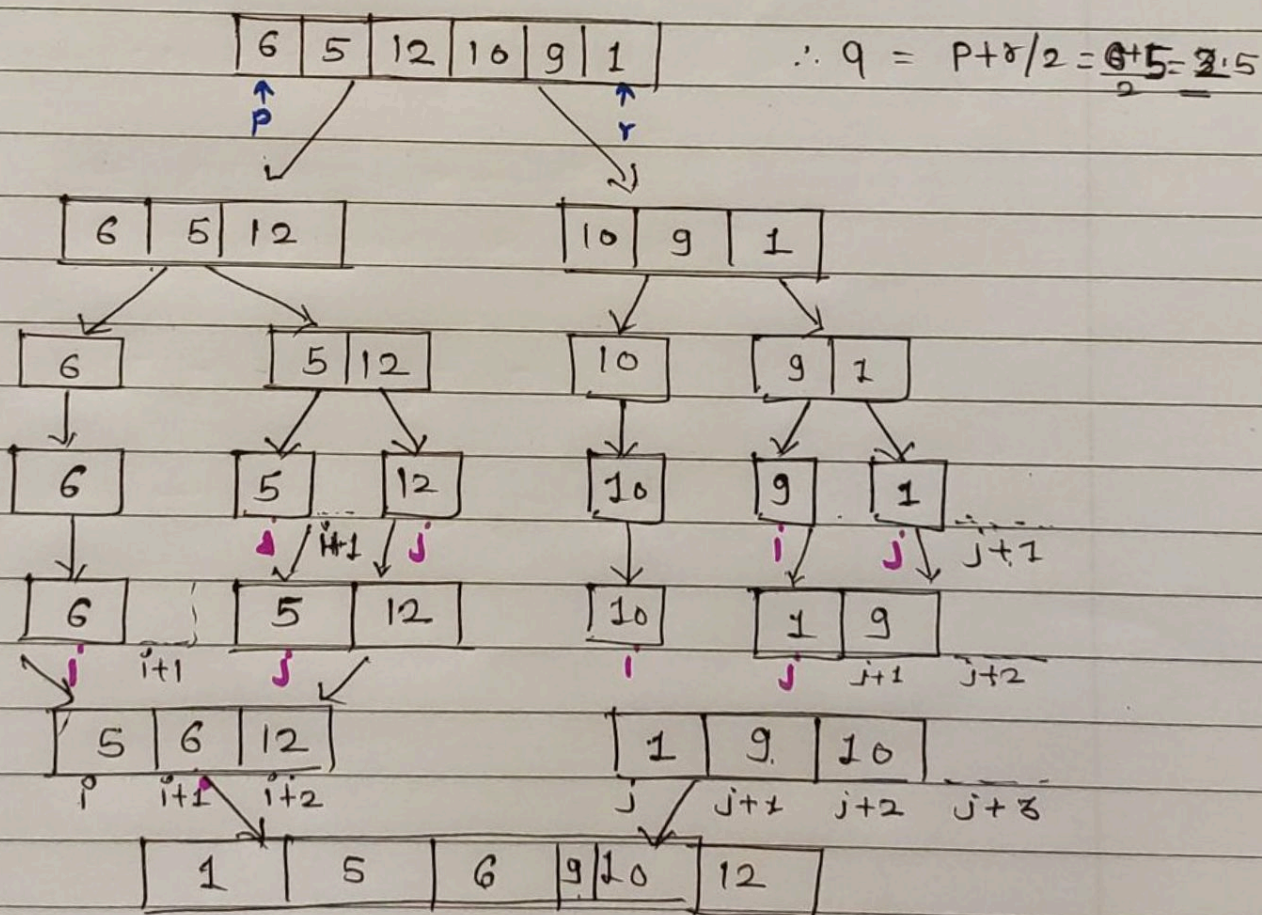 6 5 12 10 9 1 ∴ q = P+r/2 = 0+5/2 = 2.5
p r
6 5 12 10 9 1
6 5 12 10 9 1
6 5 12 10 9 1
i i+1 j i j j+1
6 5 12 10 1 9
i i+1 j i j j+1 j+2
5 6 12 1 9 10
i i+1 i+2 j j+1 j+2 j+3
1 5 6 9 10 12